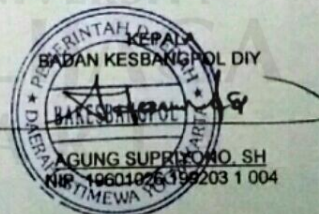 KEPALA
BADAN KESBANGPOL DIY
PEMERINTAH DAERAH
BAKESBANGPOL
DAERAH ISTIMEWA YOGYAKARTA
AGUNG SUPRIYONO, SH
NIP. 19601026 199203 1 004